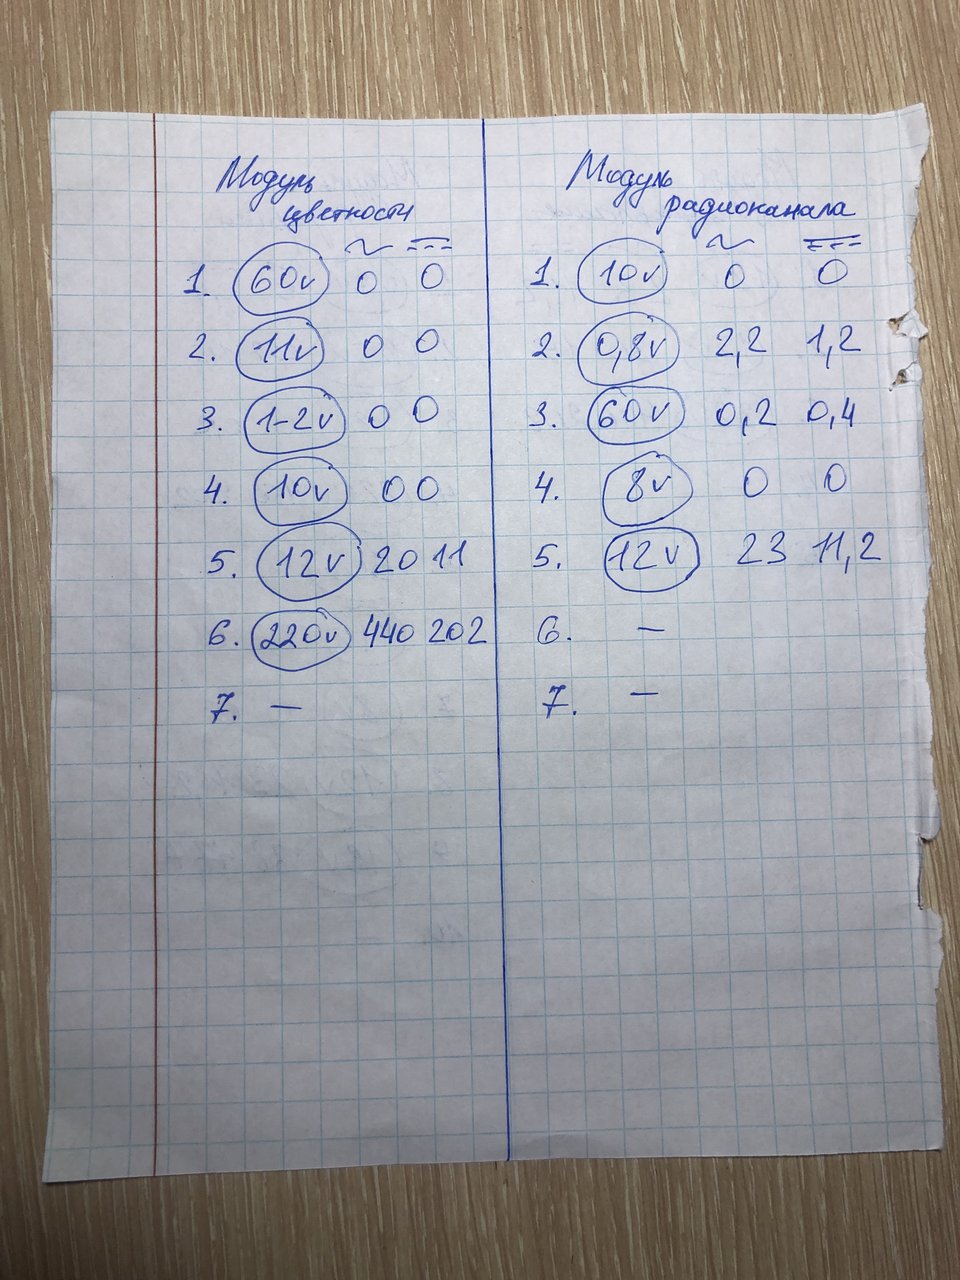 Модуль
цветности
~ ⎓
1. 60v 0 0
2. 11v 0 0
3. 1-2v 0 0
4. 10v 0 0
5. 12v 20 11
6. 220v 440 202
7. —
Модуль
радиоканала
~ ⎓
1. 10v 0 0
2. 0,8v 2,2 1,2
3. 60v 0,2 0,4
4. 8v 0 0
5. 12v 23 11,2
6. —
7. —